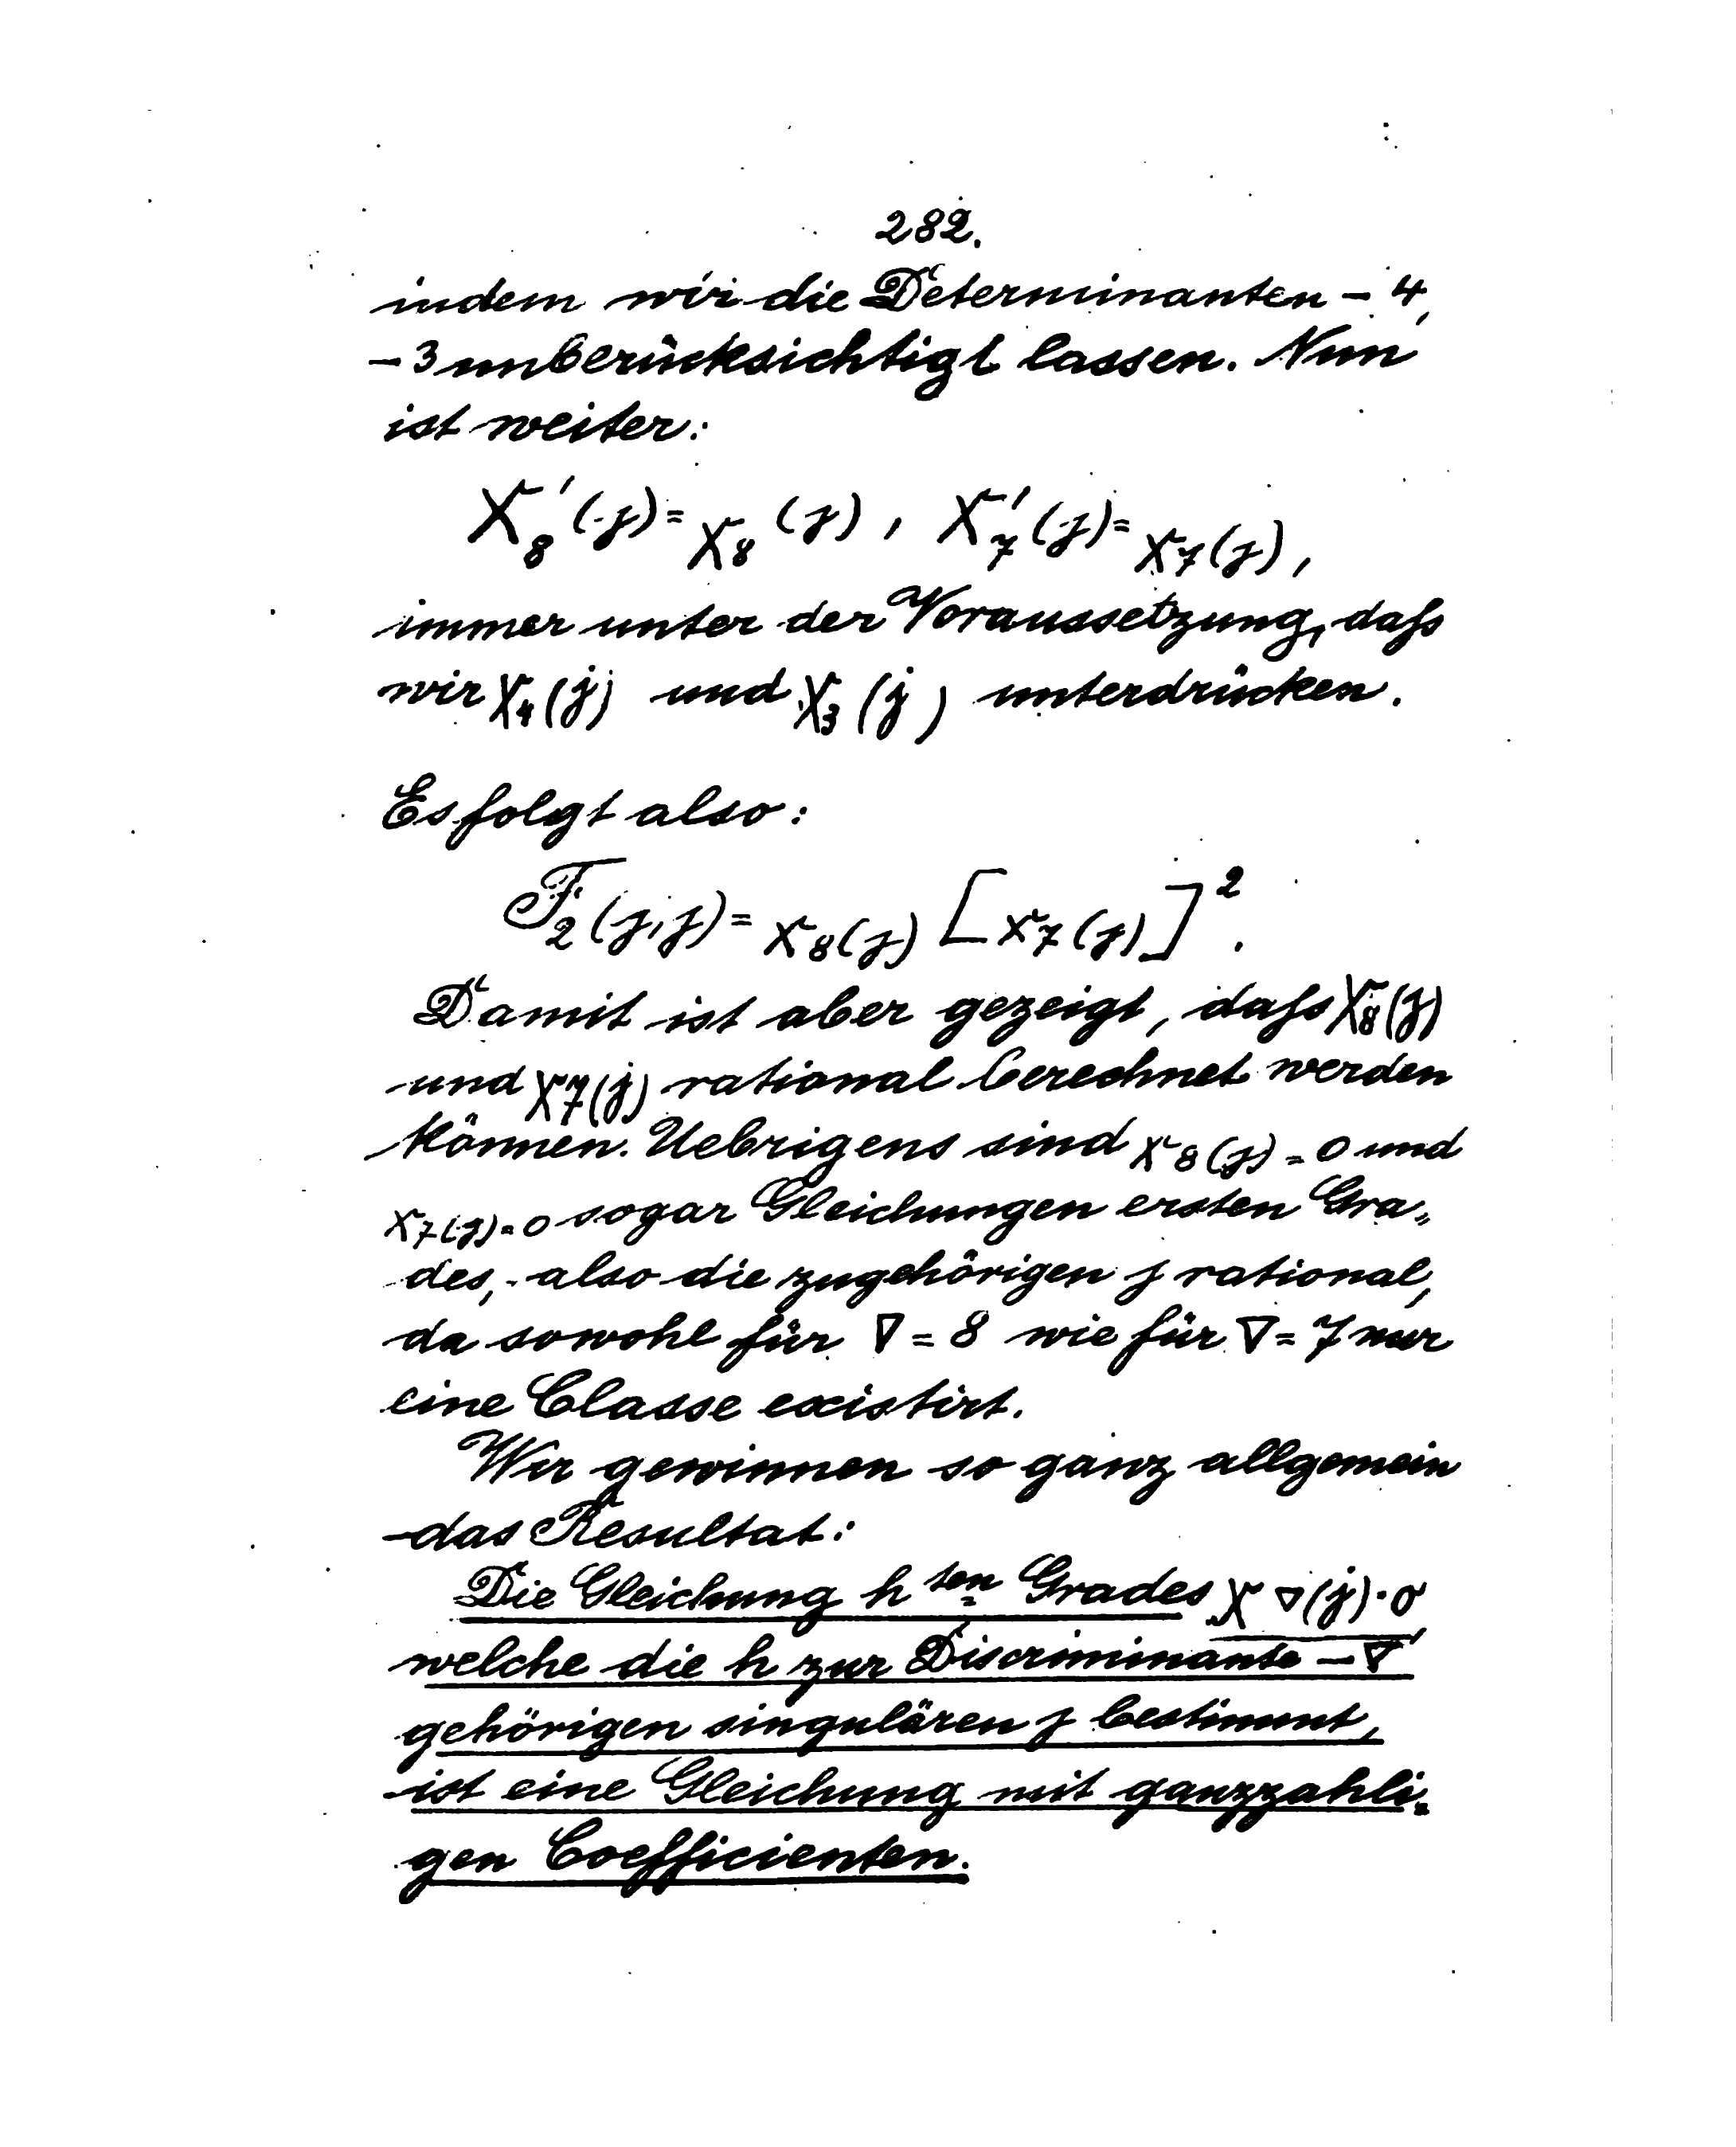 282.
indem wir die Determinanten - 4,
- 3 unberücksichtigt lassen. Nun
ist weiter:
X'₈(j) = X₈(j), X'₇(j) = X₇(j),
immer unter der Voraussetzung, daſs
wir X₄(j) und X₃(j) unterdrücken.
Es folgt also:
F₂(j,j) = X₈(j) [X₇(j)]².
Damit ist aber gezeigt, daſs X₈(j)
und X₇(j) rational berechnet werden
können. Uebrigens sind X₈(j) = 0 und
X₇(j) = 0 sogar Gleichungen ersten Gra„
des, also die zugehörigen j rational,
da sowohl für ∇ = 8 wie für ∇ = 7 nur
eine Classe existirt.
Wir gewinnen so ganz allgemein
das Resultat:
Die Gleichung h ten Grades X∇(j) = 0
welche die h zur Discriminante - ∇
gehörigen singulären j bestimmt,
ist eine Gleichung mit ganzzahli=
gen Coefficienten.